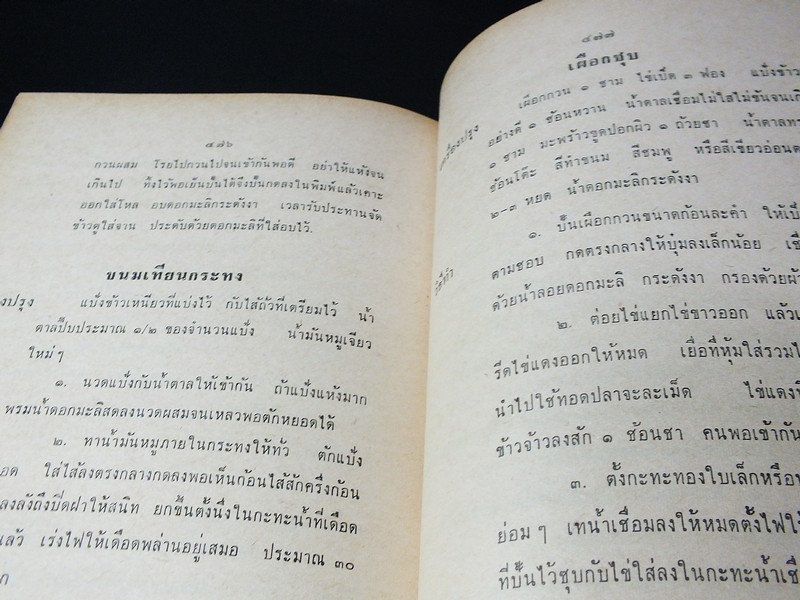 ๔๗๖
กวนผสม โรยไปกวนไปจนเข้ากันพอดี อย่าให้แห้งจน
เกินไป ทิ้งไว้พอเย็นปั้นได้จึงปั้นกดลงในพิมพ์แล้วเคาะ
ออกใส่โหล อบดอกมะลิกระดังงา เวลารับประทานจัด
ข้าวตูใส่จาน ประดับด้วยดอกมะลิที่ใส่อบไว้.
ขนมเทียนกระทง
งปรุง แป้งข้าวเหนียวที่แบ่งไว้ กับไส้ถั่วที่เตรียมไว้ น้ำ
ตาลปี๊บประมาณ ๑/๒ ของจำนวนแป้ง น้ำมันหมูเจียว
ใหม่ๆ
๑. นวดแป้งกับน้ำตาลให้เข้ากัน ถ้าแป้งแห้งมาก
พรมน้ำดอกมะลิสดลงนวดผสมจนเหลวพอตักหยอดได้
๒. ทาน้ำมันหมูภายในกระทงให้ทั่ว ตักแป้ง
ยอด ใส่ไส้ลงตรงกลางกดลงพอเห็นก้อนไส้สักครึ่งก้อน
ลงลังถึงปิดฝาให้สนิท ยกขึ้นตั้งนึ่งในกะทะน้ำที่เดือด
นแล้ว เร่งไฟให้เดือดพล่านอยู่เสมอ ประมาณ ๓๐
ก
๔๗๗
เผือกชุบ
เครื่องปรุง เผือกกวน ๑ ชาม ไข่เป็ด ๓ ฟอง แป้งข้าว
อย่างดี ๑ ช้อนหวาน น้ำตาลเชื่อมไม่ใสไม่ข้นจนเกิ
๑ ชาม มะพร้าวขูดปอกผิว ๑ ถ้วยชา น้ำตาลทร
ช้อนโต๊ะ สีทำขนม สีชมพู หรือสีเขียวอ่อนด
๒-๓ หยด น้ำดอกมะลิกระดังงา
วิธีทำ ๑. ปั้นเผือกกวนขนาดก้อนละคำ ให้เป็
ตามชอบ กดตรงกลางให้บุ๋มลงเล็กน้อย เชื่
ด้วยน้ำลอยดอกมะลิ กระดังงา กรองด้วยผ้า
๒. ต่อยไข่แยกไข่ขาวออก แล้วเ
รีดไข่แดงออกให้หมด เยื่อที่หุ้มใส่รวมไ
นำไปใช้ทอดปลาจะละเม็ด ไข่แดงที่
ข้าวจ้าวลงสัก ๑ ช้อนชา คนพอเข้ากัน
๓. ตั้งกะทะทองใบเล็กหรือห
ย่อมๆ เทน้ำเชื่อมลงให้หมดตั้งไฟให้
ที่ปั้นไว้ชุบกับไข่ใส่ลงในกะทะน้ำเชื่